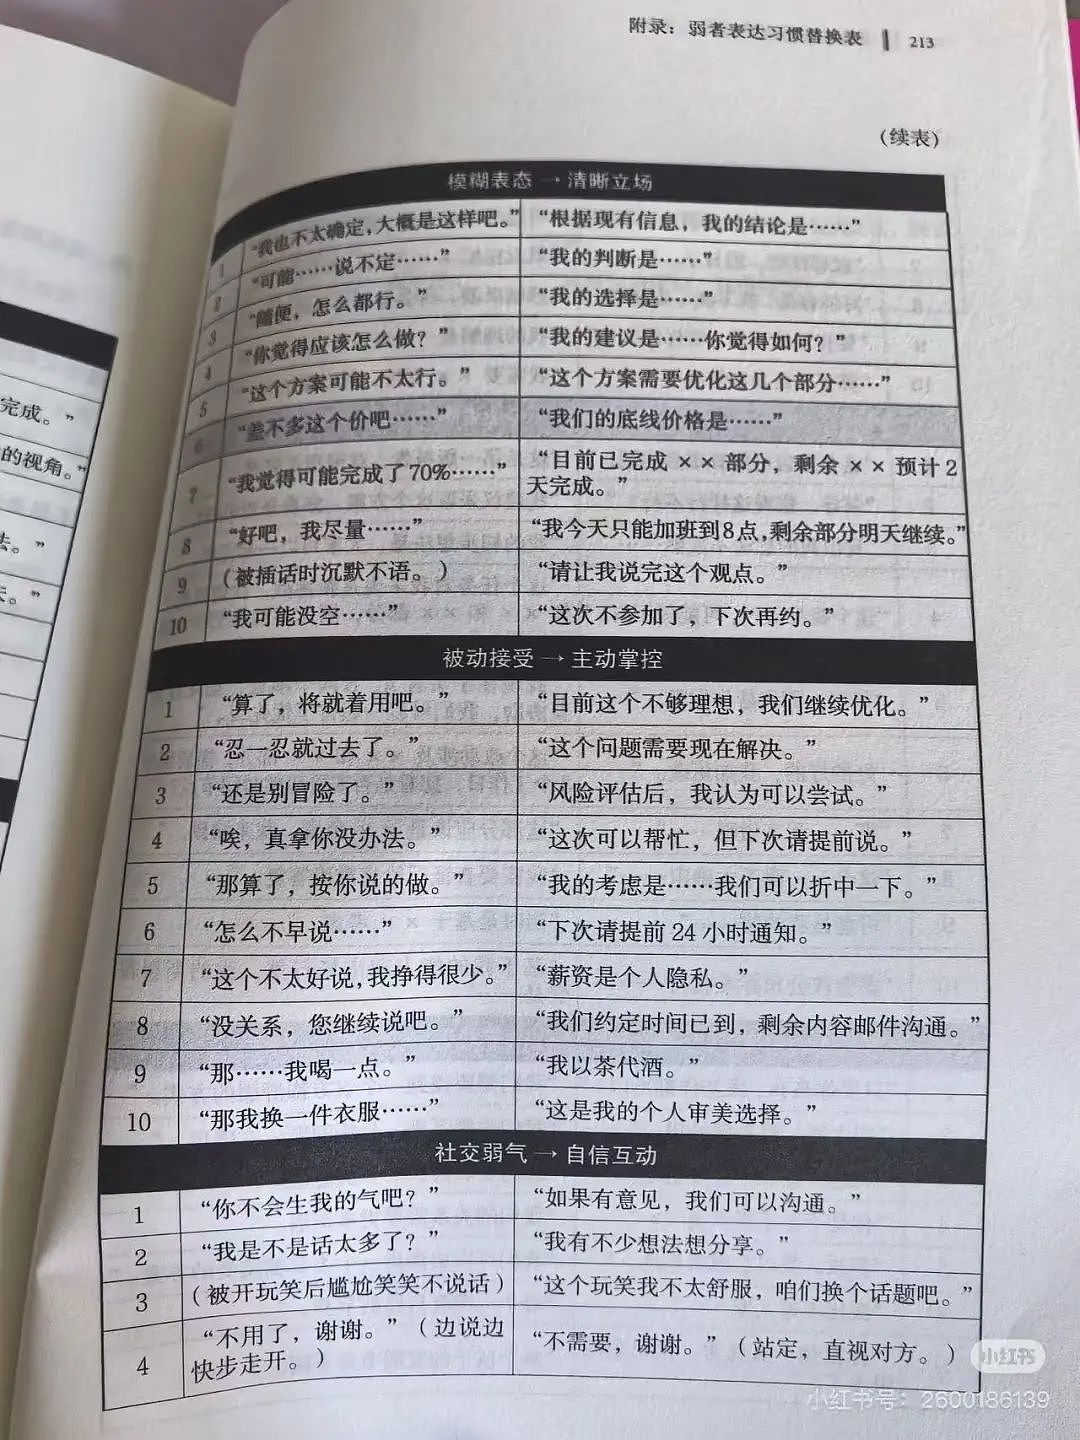 附录：弱者表达习惯替换表 213
（续表）
模糊表态 → 清晰立场
1 “我也不太确定，大概是这样吧。” “根据现有信息，我的结论是……”
2 “可能……说不定……” “我的判断是……”
3 “随便，怎么都行。” “我的选择是……”
4 “你觉得应该怎么做？” “我的建议是……你觉得如何？”
5 “这个方案可能不太行。” “这个方案需要优化这几个部分……”
6 “差不多这个价吧……” “我们的底线价格是……”
7 “我觉得可能完成了70%……” “目前已完成 ×× 部分，剩余 ×× 预计2
天完成。”
8 “好吧，我尽量……” “我今天只能加班到8点，剩余部分明天继续。”
9 （被插话时沉默不语。） “请让我说完这个观点。”
10 “我可能没空……” “这次不参加了，下次再约。”
被动接受 → 主动掌控
1 “算了，将就着用吧。” “目前这个不够理想，我们继续优化。”
2 “忍一忍就过去了。” “这个问题需要现在解决。”
3 “还是别冒险了。” “风险评估后，我认为可以尝试。”
4 “唉，真拿你没办法。” “这次可以帮忙，但下次请提前说。”
5 “那算了，按你说的做。” “我的考虑是……我们可以折中一下。”
6 “怎么不早说……” “下次请提前24小时通知。”
7 “这个不太好说，我挣得很少。” “薪资是个人隐私。”
8 “没关系，您继续说吧。” “我们约定时间已到，剩余内容邮件沟通。”
9 “那……我喝一点。” “我以茶代酒。”
10 “那我换一件衣服……” “这是我的个人审美选择。”
社交弱气 → 自信互动
1 “你不会生我的气吧？” “如果有意见，我们可以沟通。”
2 “我是不是话太多了？” “我有不少想法想分享。”
3 （被开玩笑后尴尬笑笑不说话） “这个玩笑我不太舒服，咱们换个话题吧。”
4 “不用了，谢谢。”（边说边
快步走开。） “不需要，谢谢。”（站定，直视对方。）
完成。”
的视角。”
法。”
天。”
小红书
小红书号：2600186139